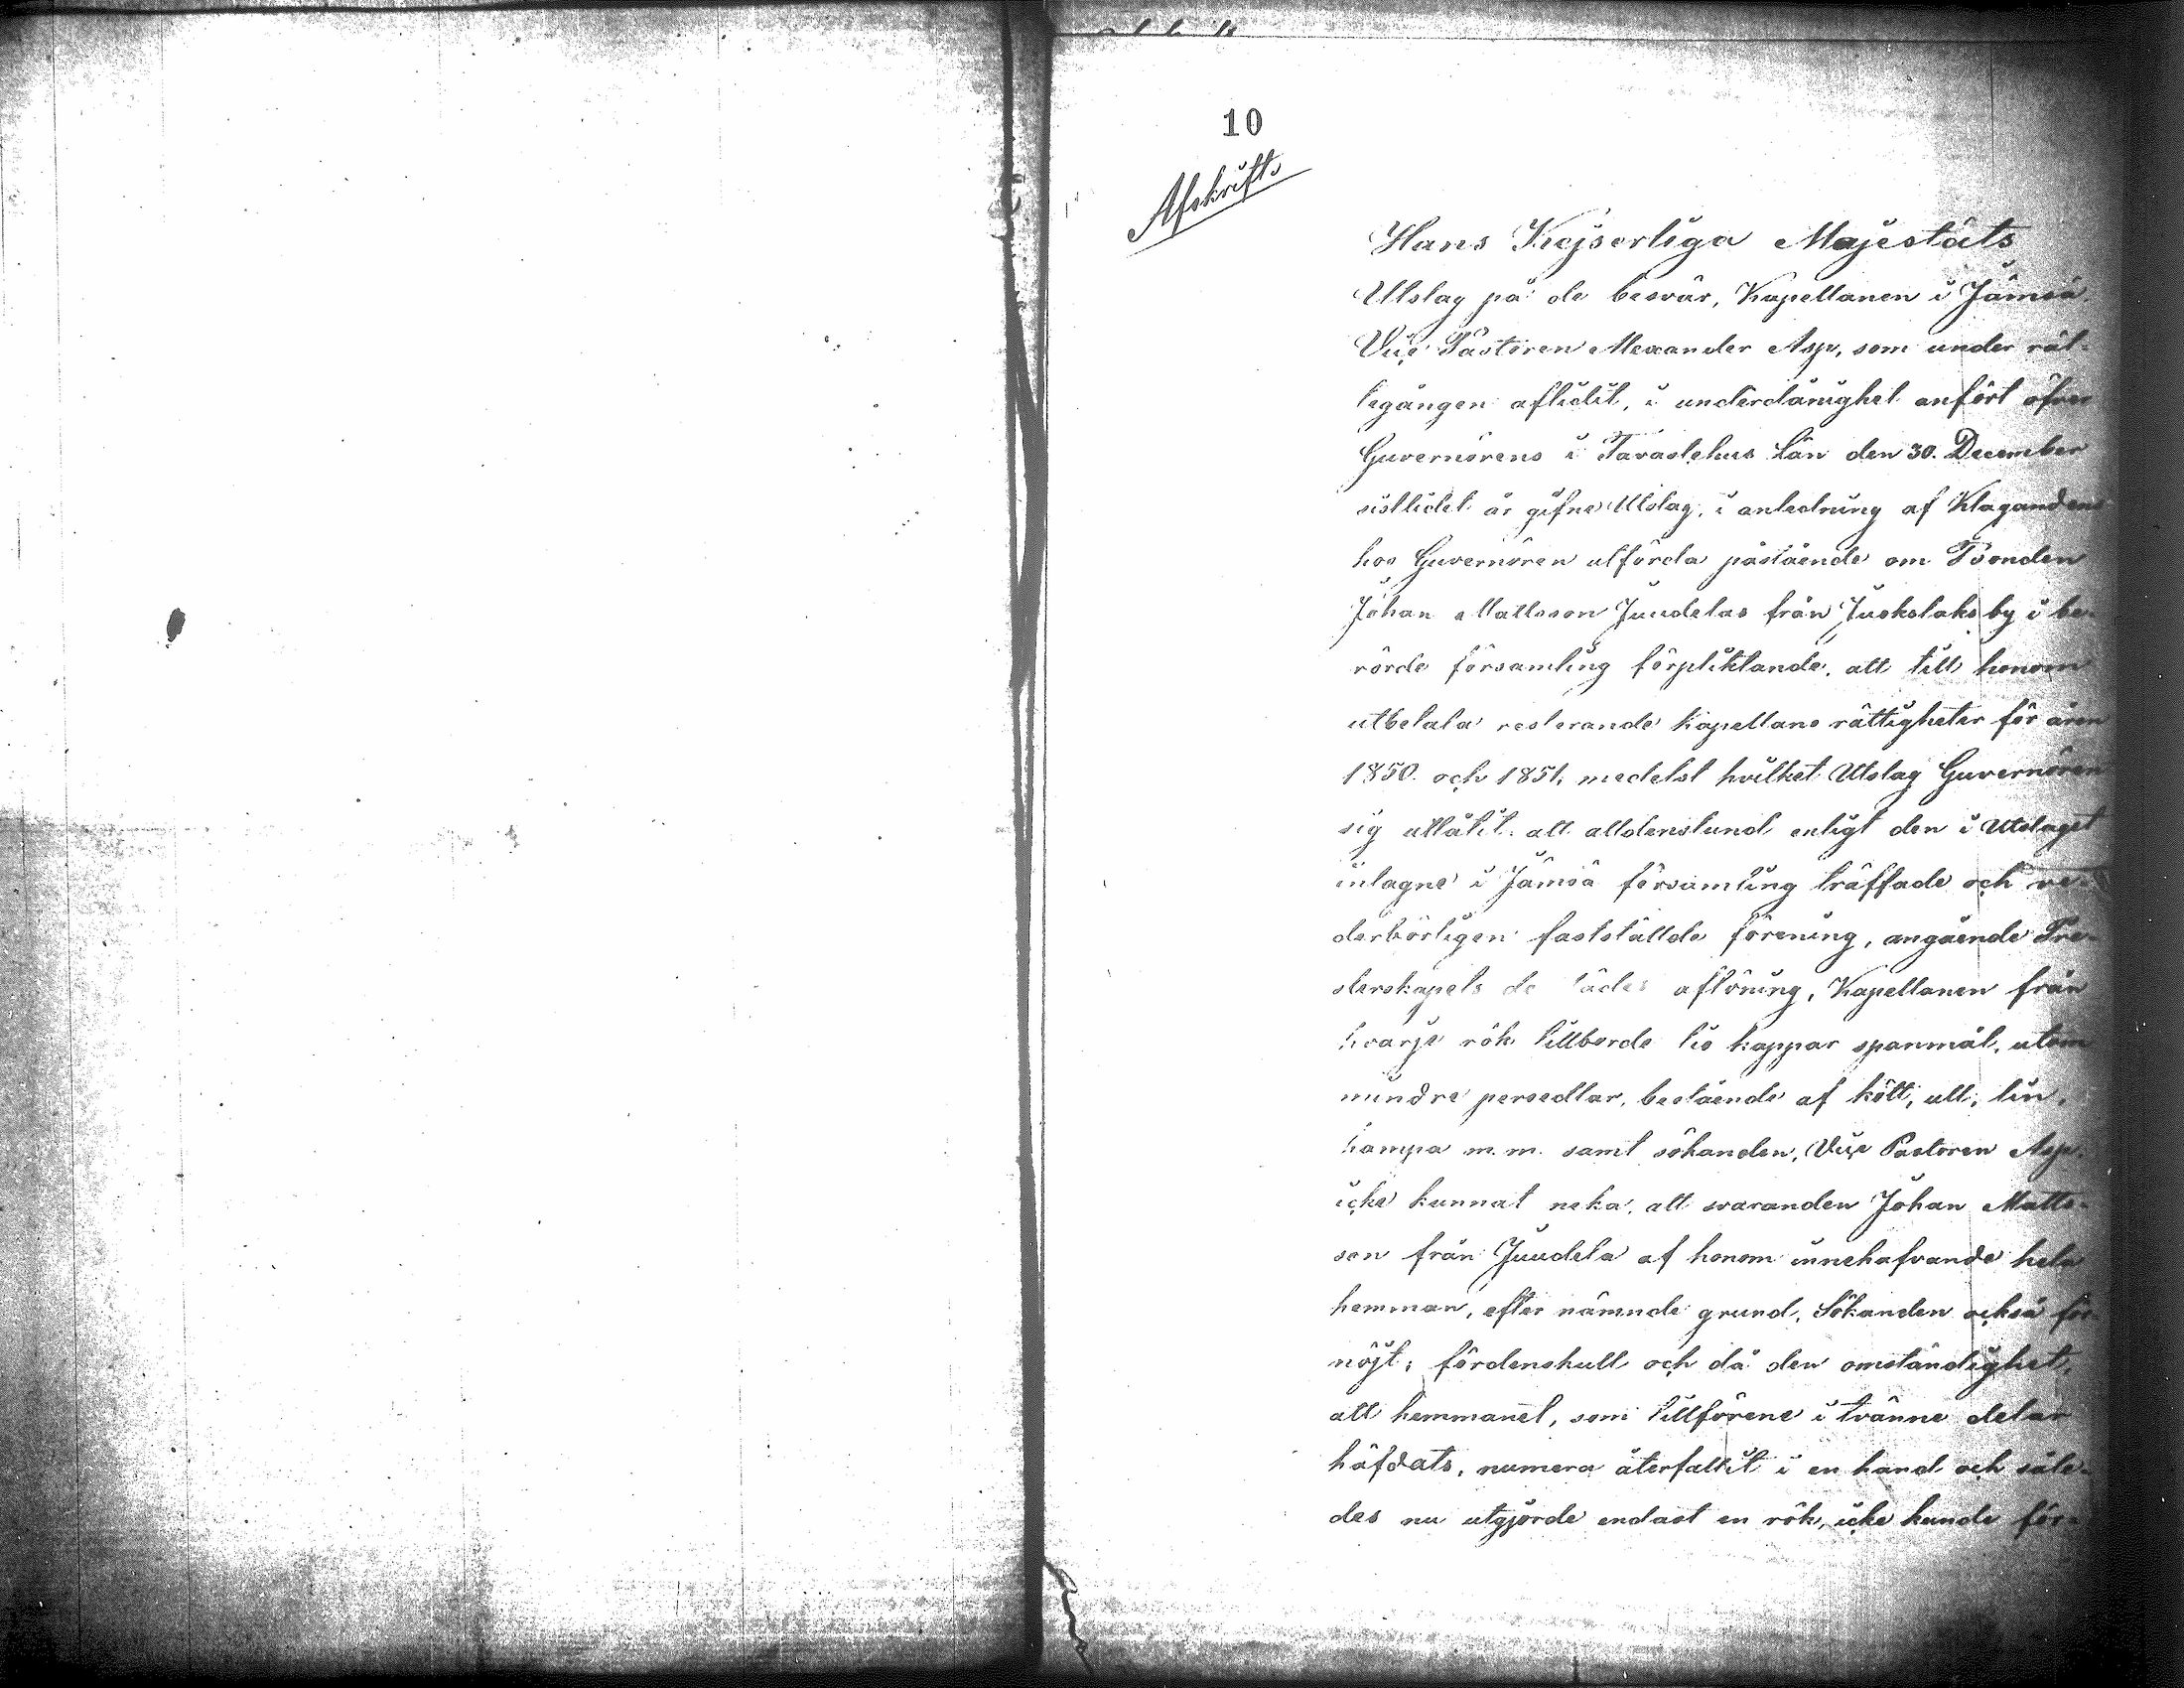 10
Afskrift
Hans Kejserliga Majestäts
Utslag på de besvär, Kapellanen i Jämsä
Vice Pastoren Alexander Asp, som under rät-
tegången aflidit, i underdånighet anfört öfver
Guvernörens i Tavastehus Län den 30. December
sistlidet år gifne Utslag, i anledning af Klagandens
hos Guvernören utförda påstående om Bonden
Johan Mattsson Juudelas från Juokslaks by i be-
rörde församling förpliktande, att till honom
utbetala resterande Kapellans rättigheter för åren
1850. och 1851, medelst hvilket Utslag Guvernören
sig utlåtit: att alldenstund enligt den i Utslaget
intagne i Jämsä församling träffade och ve-
derbörligen fastställde förening, angående Pre-
sterskapets de aflöning, Kapellanen från
hvarje rök tillborde tio kappar spanmål, utom
mindre persedlar, bestående af kött, ull, lin,
hampa m. m. samt sökanden, Vice Pastoren Asp.
icke kunnat neka, att svaranden Johan Matts-
son från Juudela af honom innehafvande hela
hemman, efter nämnde grund, Sökanden också för-
nöjt; fördenskull och då den omständighet,
att hemmanet, som tillförene i tvänne delar
häfdats, numera återfallit i en hand och såle-
des nu utgjorde endast en rök, icke kunde för-